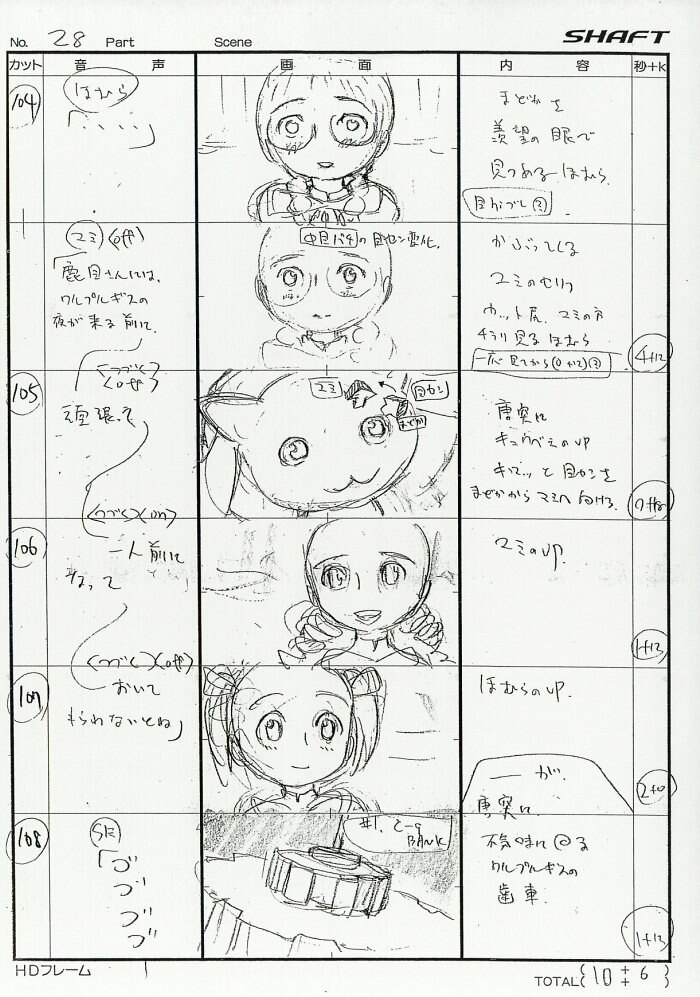 No. 28 Part Scene SHAFT
カット 音 声 画 面 内 容 秒+K
104
ほむら
「、、、、」
まどかを
羨望の眼で
見つめるほむら
マミ (off)
「鹿目さんには、
ワルプルギスの
夜が来る前に、
<つづく>
<off>
中目パチの目セン変化。
かぶってくる
マミのセリフ
カット尻、マミの方
チラリ見るほむら
4+12
105
頑張って
<つづく>(on)
マミ
目セン
まどか
唐突に
キュウべえのUP
キロッと目センを
まどかからマミへ向ける
106
一人前に
なって
<つづく>(off)
マミのUP.
1+12
107
おいて
もらわないとね」
ほむらのUP.
— が、
2+0
108
SE
「ゴ
ゴ
ゴ
ゴ
#1. C-9
BANK
唐突に
不気味に回る
ワルプルギスの
歯車
1+12
HDフレーム
TOTAL (10+6)